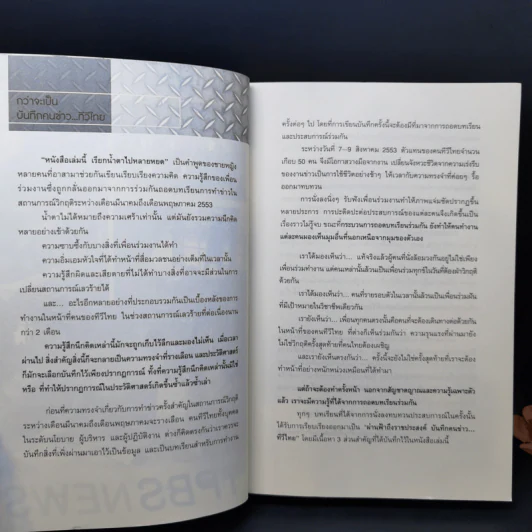 กว่าจะเป็น
บันทึกคนข่าว...ทีวีไทย
"หนังสือเล่มนี้ เรียกน้ำตาไปหลายหยด" เป็นคำพูดของชายหญิง
หลายคนที่อาสามาช่วยกันเขียนเรียบเรียงความคิด ความรู้สึกของเพื่อน
ร่วมงานซึ่งถูกกลั่นออกมาจากการร่วมกันถอดบทเรียนการทำข่าวใน
สถานการณ์วิกฤติระหว่างเดือนมีนาคมถึงเดือนพฤษภาคม 2553
น้ำตาไม่ได้หมายถึงความเศร้าเท่านั้น แต่มันยังรวมความนึกคิด
หลายอย่างเข้าด้วยกัน
ความซาบซึ้งกับบางสิ่งที่เพื่อนร่วมงานได้ทำ
ความอิ่มเอมหัวใจที่ได้ทำหน้าที่สื่อมวลชนอย่างเต็มที่ในเวลานั้น
ความรู้สึกผิดและเสียดายที่ไม่ได้ทำบางสิ่งที่อาจจะมีส่วนในการ
เปลี่ยนสถานการณ์เลวร้ายได้
และ... อะไรอีกหลายอย่างที่ประกอบรวมกันเป็นเบื้องหลังของการ
ทำงานในหน้าที่คนของทีวีไทย ในช่วงสถานการณ์เลวร้ายที่ต่อเนื่องนาน
กว่า 2 เดือน
ความรู้สึกนึกคิดเหล่านี้มักจะถูกเก็บไว้ลึกและมองไม่เห็น เมื่อเวลา
ผ่านไป สิ่งสำคัญสิ่งนี้ก็จะกลายเป็นความทรงจำที่รางเลือน และประวัติศาสตร์
ก็มักจะเลือกบันทึกไว้เพียงปรากฏการณ์ ทั้งที่ความรู้สึกนึกคิดเหล่านั้นมิใช่
หรือ ที่ทำให้ปรากฏการณ์ในประวัติศาสตร์เกิดขึ้นซ้ำแล้วซ้ำเล่า
ก่อนที่ความทรงจำเกี่ยวกับการทำข่าวครั้งสำคัญในสถานการณ์วิกฤติ
ระหว่างเดือนมีนาคมถึงเดือนพฤษภาคมจะรางเลือน คนทีวีไทยทั้งบุคคล
ในระดับนโยบาย ผู้บริหาร และผู้ปฏิบัติงาน ต่างก็คิดตรงกันว่าเราควรจะ
บันทึกสิ่งที่เพิ่งผ่านมาเอาไว้เป็นข้อมูล และเป็นบทเรียนสำหรับการทำงาน
PBS NEWS
ครั้งต่อๆ ไป โดยที่การเขียนบันทึกครั้งนี้จะต้องมีที่มาจากการถอดบทเรียน
และประสบการณ์ร่วมกัน
ระหว่างวันที่ 7–9 สิงหาคม 2553 ตัวแทนของคนทีวีไทยจำนวน
เกือบ 50 คน จึงมีโอกาสวางมือจากงาน เปลี่ยนจังหวะชีวิตจากความเร่งรีบ
ของงานข่าวเป็นการใช้ชีวิตอย่างช้าๆ ให้เวลากับความทรงจำที่ค่อยๆ รื้อ
ออกมาทบทวน
การนั่งลงนิ่งๆ รับฟังเพื่อนร่วมงานทำให้ภาพแจ่มชัดปรากฏขึ้น
หลายประการ การปะติดปะต่อประสบการณ์ของแต่ละคนจึงเกิดขึ้นเป็น
เรื่องราวไม่รู้จบ ขณะที่กระบวนการถอดบทเรียนร่วมกัน ยังทำให้คนทำงาน
แต่ละคนมองเห็นมุมอื่นที่นอกเหนือจากมุมของตัวเอง
เราได้มองเห็นว่า... แท้จริงแล้วผู้คนที่นั่งล้อมวงกันอยู่ไม่ใช่เพียง
เพื่อนร่วมทำงาน แต่คนเหล่านั้นล้วนเป็นเพื่อนร่วมทุกข์ในวันที่ต้องฝ่าวิกฤติ
ด้วยกัน
เราได้มองเห็นว่า... คนที่รายรอบตัวในเวลานั้นล้วนเป็นเพื่อนร่วมฝัน
ที่มีเป้าหมายในวิชาชีพเดียวกัน
เราได้มองเห็นว่า... เพื่อนทุกคนตรงนั้นคือคนที่จะต้องเดินทางต่อด้วยกัน
ในหน้าที่ของคนทีวีไทย ที่ต่างก็เห็นร่วมกันว่า ความรุนแรงที่ผ่านมายัง
ไม่ใช่วิกฤติครั้งสุดท้ายที่คนไทยต้องเผชิญ
และเรายังเห็นตรงกันว่า... ครั้งนี้จะยังไม่ใช่ครั้งสุดท้ายที่เราจะต้อง
ทำหน้าที่อย่างหนักหน่วงเหมือนที่ได้ทำมา
แต่ถ้าจะต้องทำครั้งหน้า นอกจากสัญชาตญาณและความรู้เฉพาะตัว
แล้ว เราจะมีความรู้ที่ได้จากการถอดบทเรียนร่วมกัน
ทุกๆ บทเรียนที่ได้จากการนั่งลงทบทวนประสบการณ์ในครั้งนั้น
ได้รับการเรียบเรียงออกมาเป็น "ผ่านฟ้าถึงราชประสงค์ บันทึกคนข่าว...
ทีวีไทย" โดยมีเนื้อหา 3 ส่วนสำคัญที่ได้บันทึกไว้ในหนังสือเล่มนี้